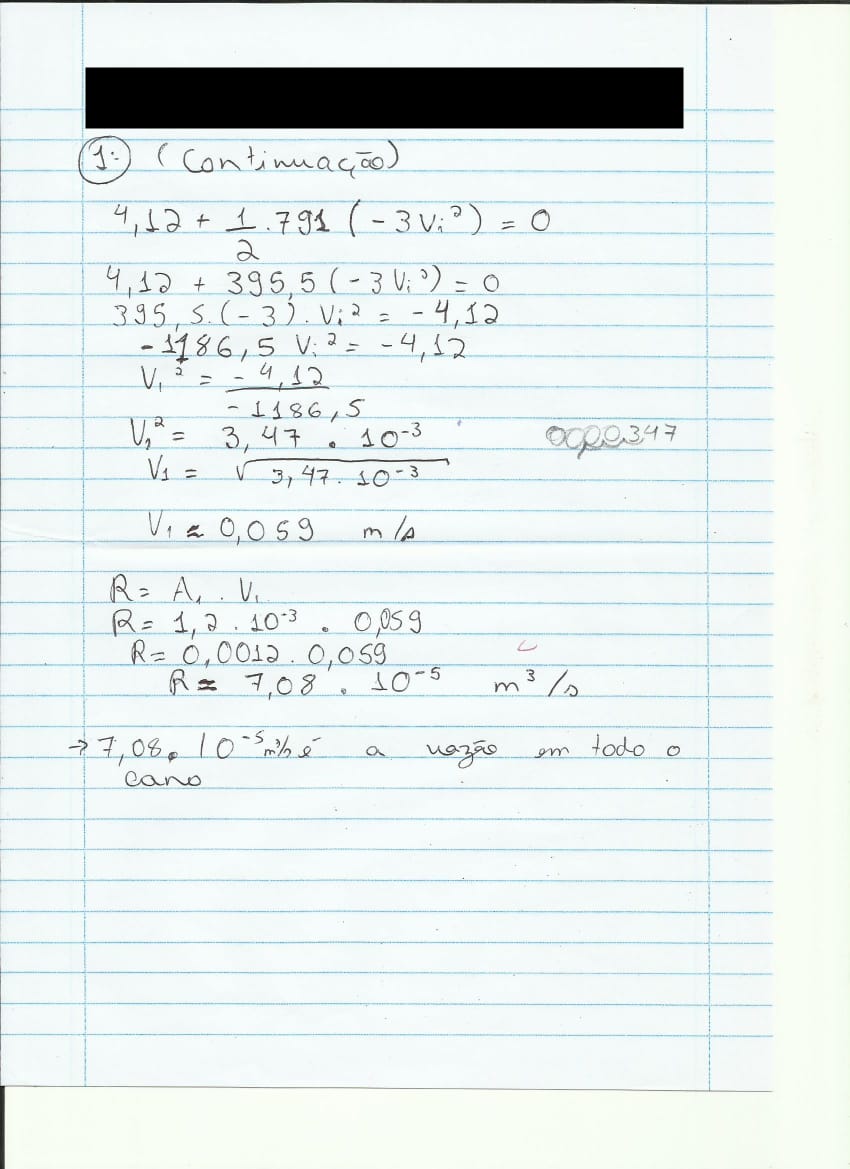 1:- (Continuação)
4,12 + 1/2 . 791 (-3 Vi²) = 0
4,12 + 395,5 (-3 Vi²) = 0
395,5.(-3). Vi² = -4,12
-1186,5 Vi² = -4,12
V₁² = -4,12 / -1186,5
V₁² = 3,47 . 10⁻³
V₁ = √3,47.10⁻³
V₁ ≈ 0,059 m/s
R = A₁ . V₁
R = 1,2 . 10⁻³ . 0,059
R = 0,0012. 0,059
R ≈ 7,08 . 10⁻⁵ m³/s
→ 7,08. 10⁻⁵ m³/s é a vazão em todo o
cano